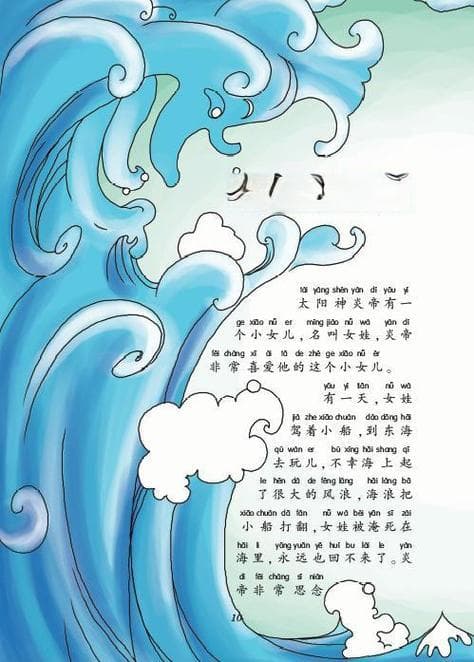 tài yáng shén yán dì yǒu yí
太阳神炎帝有一
ge xiǎo nǚ er míng jiào nǚ wá yán dì
个小女儿,名叫女娃,炎帝
fēi cháng xǐ ài tā de zhè ge xiǎo nǚ ér
非常喜爱他的这个小女儿。
yǒu yì tiān nǚ wá
有一天,女娃
jià zhe xiǎo chuán dào dōng hǎi
驾着小船,到东海
qù wán er bú xìng hǎi shang qǐ
去玩儿,不幸海上起
le hěn dà de fēng làng hǎi làng bǎ
了很大的风浪,海浪把
xiǎo chuán dǎ fān nǚ wá bèi yān sǐ zài
小船打翻,女娃被淹死在
hǎi li yǒng yuǎn yě huí bu lái le yán
海里,永远也回不来了。炎
dì fēi cháng sī niàn
帝非常思念
10